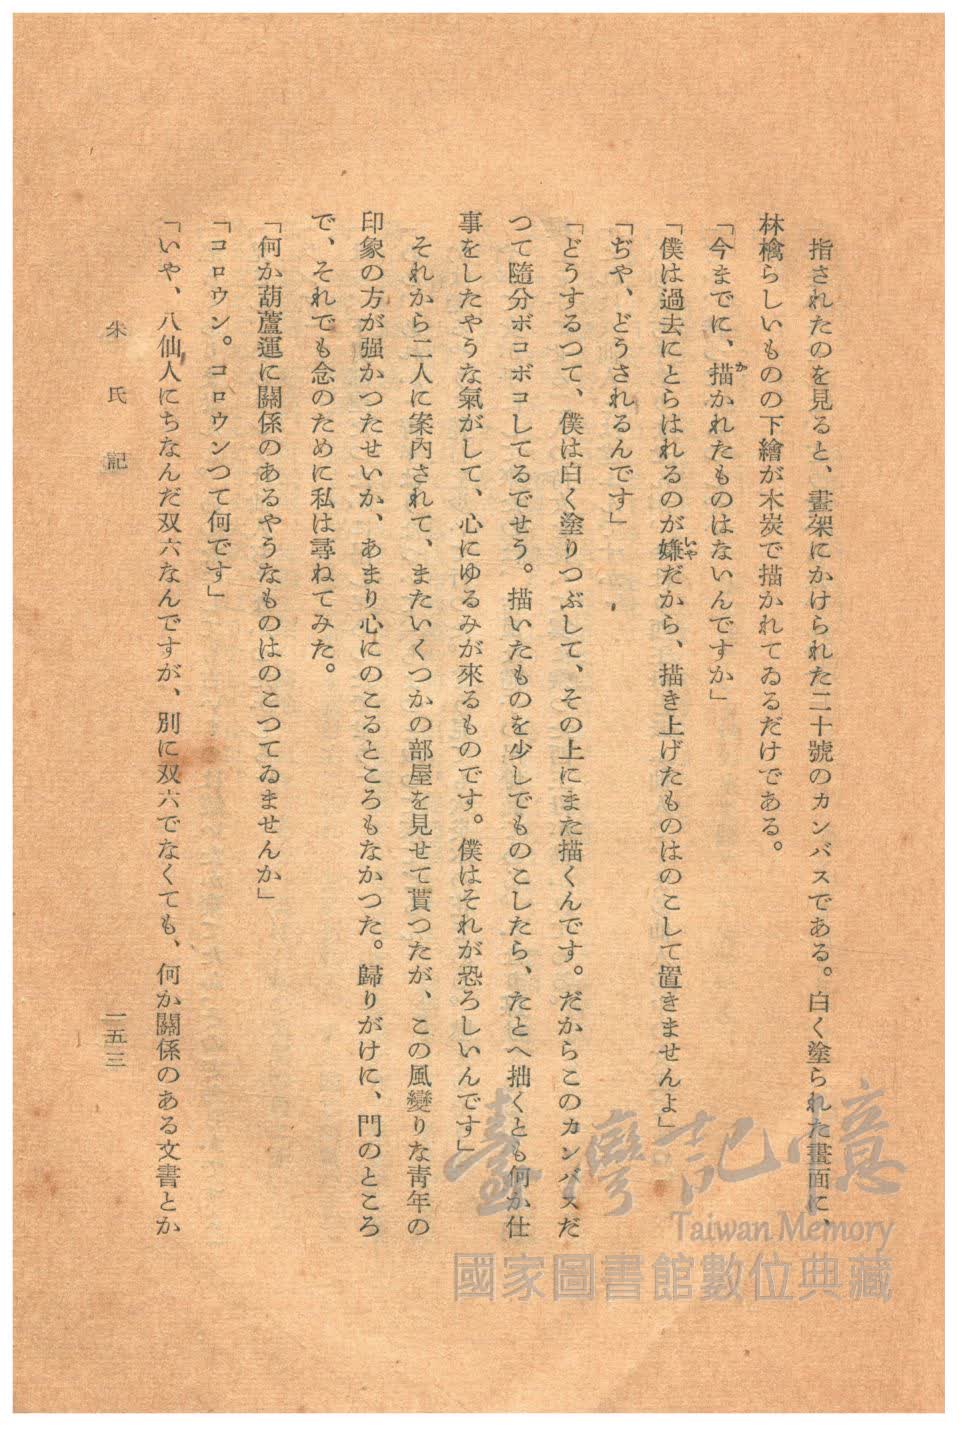 指されたのを見ると、畫架にかけられた二十號のカンバスである。白く塗られた畫面に、
林檎らしいものの下繪が木炭で描かれてゐるだけである。
「今までに、描かれたものはないんですか」
か
「僕は過去にとらはれるのが嫌だから、描き上げたものはのこして置きませんよ」
いや
「ぢや、どうされるんです」
「どうするつて、僕は白く塗りつぶして、その上にまた描くんです。だからこのカンバスだ
つて隨分ボコボコしてるでせう。描いたものを少しでものこしたら、たとへ拙くとも何か仕
事をしたやうな氣がして、心にゆるみが來るものです。僕はそれが恐ろしいんです」
それから二人に案內されて、またいくつかの部屋を見せて貰つたが、この風變りな靑年の
印象の方が强かつたせいか、あまり心にのこるところもなかつた。歸りがけに、門のところ
で、それでも念のために私は尋ねてみた。
「何か葫蘆運に關係のあるやうなものはのこつてゐませんか」
「コロウン。コロウンつて何です」
「いや、八仙人にちなんだ双六なんですが、別に双六でなくても、何か關係のある文書とか
朱氏記
一五三
臺灣記憶
Taiwan Memory
國家圖書館數位典藏